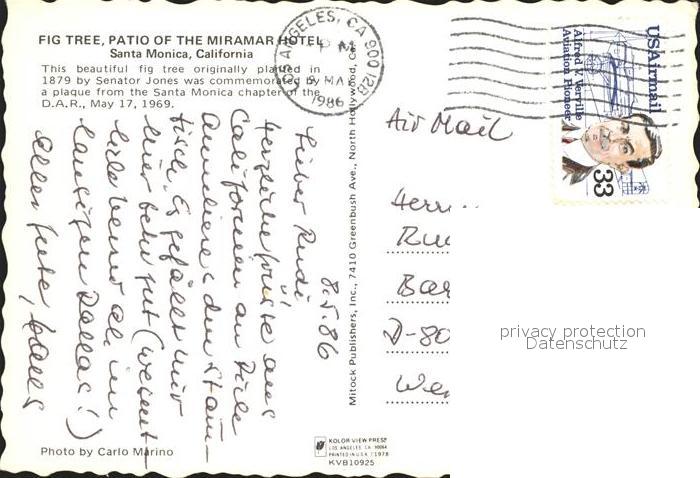 FIG TREE, PATIO OF THE MIRAMAR HOTEL
Santa Monica, California
This beautiful fig tree originally planted in
1879 by Senator Jones was commemorated by
a plaque from the Santa Monica chapter of the
D.A.R., May 17, 1969.
LOS ANGELES, CA 900 12B
MA
1986
USAirmail
Alfred V. Verville
Aviation Pioneer
33
Air Mail
8.5.86
Lieber Rudi
herzliche Grüße aus
Californien an Dich
Anneliese u den Stamm-
tisch. Es gefällt mir
hier sehr gut (wesent-
lich besser als im
lausigen Dallas!)
Alles Gute,
Mitock Publishers, Inc., 7410 Greenbush Ave., North Hollywood, Ca.
Herrn
Ru
Ba
D-80
We
privacy protection
Datenschutz
Photo by Carlo Marino
KOLOR VIEW PRESS
LOS ANGELES, CA. 90064
PRINTED IN U.S.A. / 1978
KVB10925